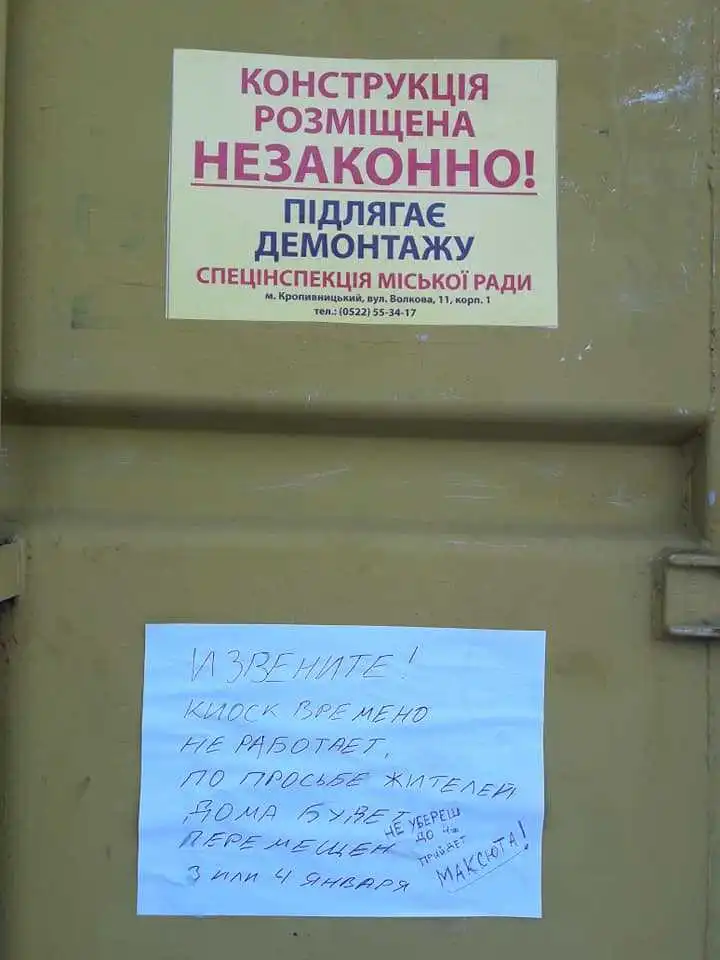 КОНСТРУКЦІЯ
РОЗМІЩЕНА
НЕЗАКОННО!
ПІДЛЯГАЄ
ДЕМОНТАЖУ
СПЕЦІНСПЕКЦІЯ МІСЬКОЇ РАДИ
м. Кропивницький, вул. Волкова, 11, корп. 1
тел.: (0522) 55-34-17
ИЗВЕНИТЕ!
КИОСК ВРЕМЕНО
НЕ РАБОТАЕТ,
ПО ПРОСЬБЕ ЖИТЕЛЕЙ
ДОМА БУДЕТ
ПЕРЕМЕЩЕН
3 ИЛИ 4 ЯНВАРЯ
НЕ УБЕРЕШ
ДО
ПРИЙДЕТ
МАКСЮТА!